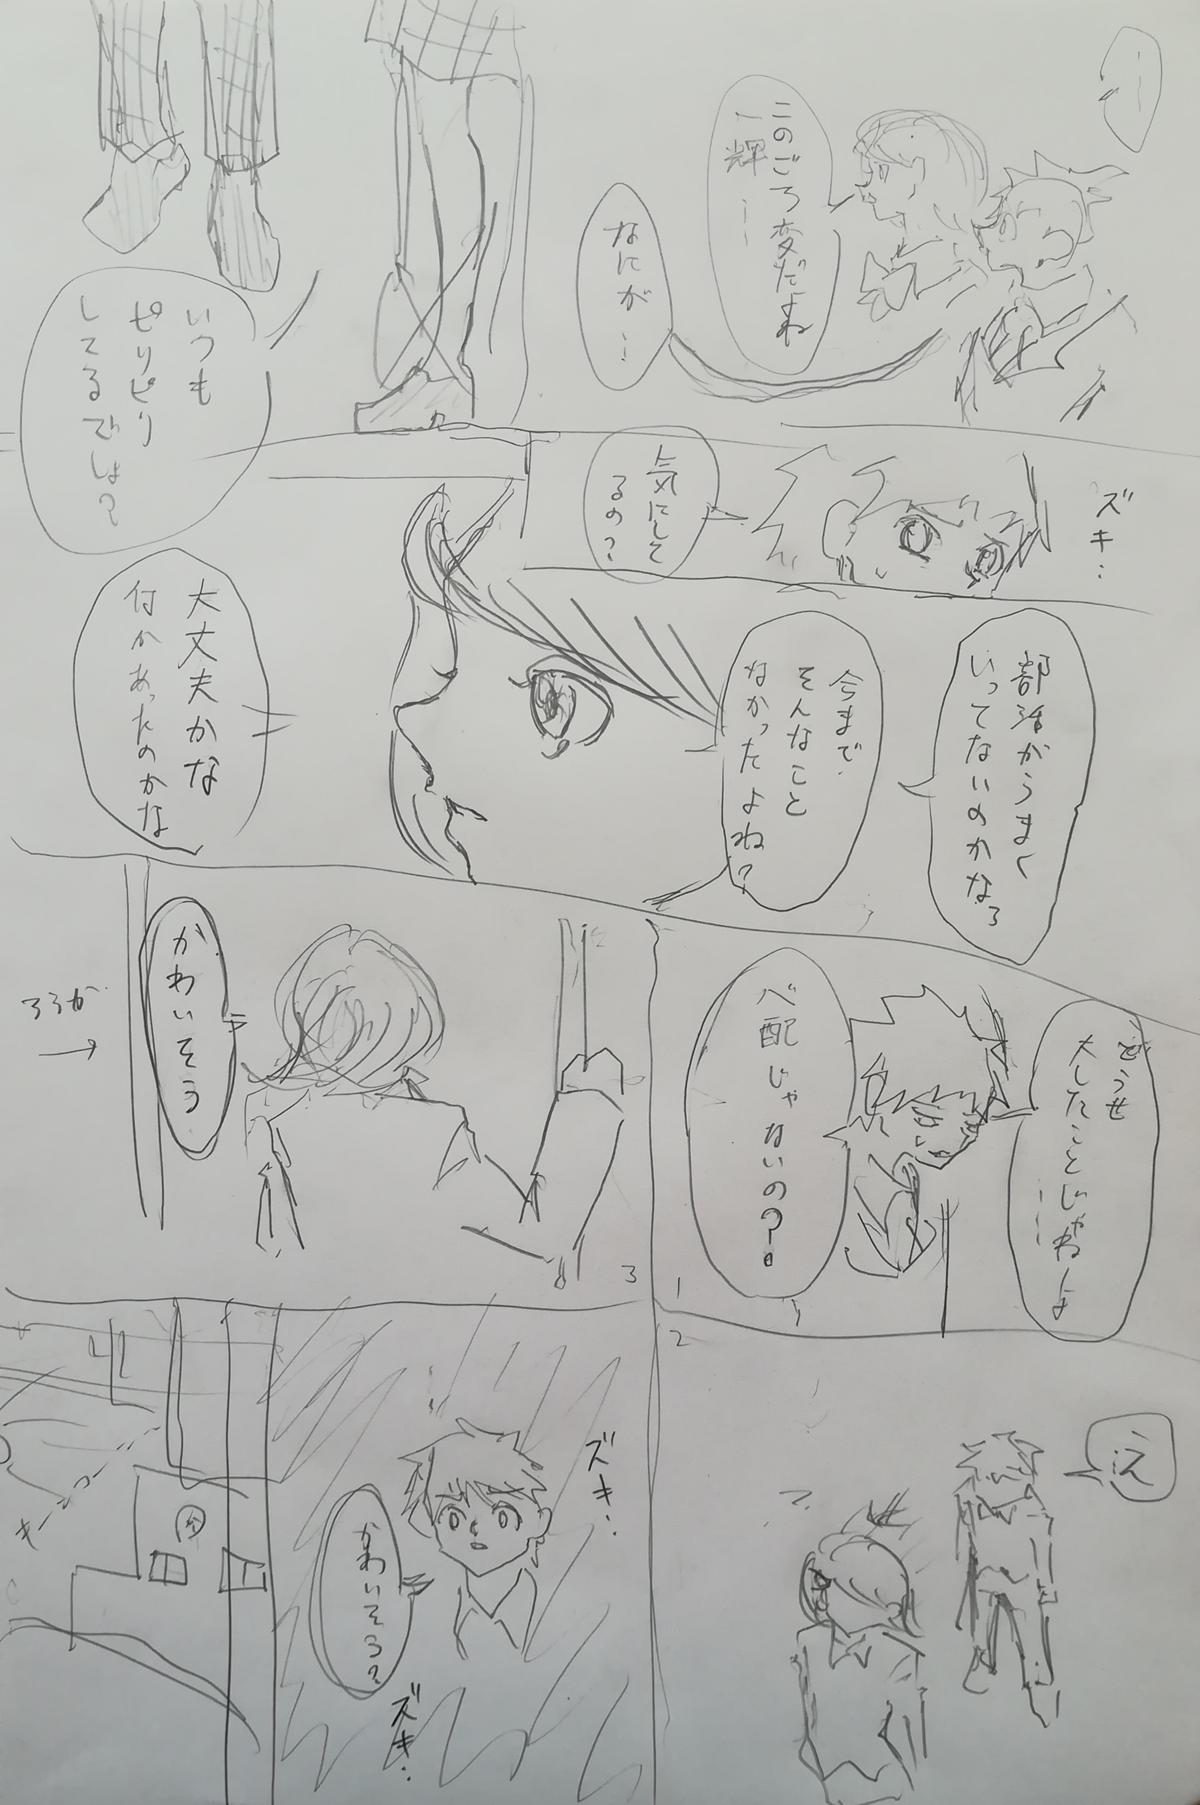 …
このごろ変だよね
一輝…
なにが…
いつも
ピリピリ
してるでしょ?
ズキ…
気にして
るの?
部活がうまく
いってないのかな?
今まで
そんなこと
なかったよね?
大丈夫かな
何かあったのかな
どうせ
大したことじゃねーよ
心配じゃないの?!
え…
2
1
3
かわいそう
ろうか
→
ズキ…
かわいそう?
ズキ…
キーンコーン